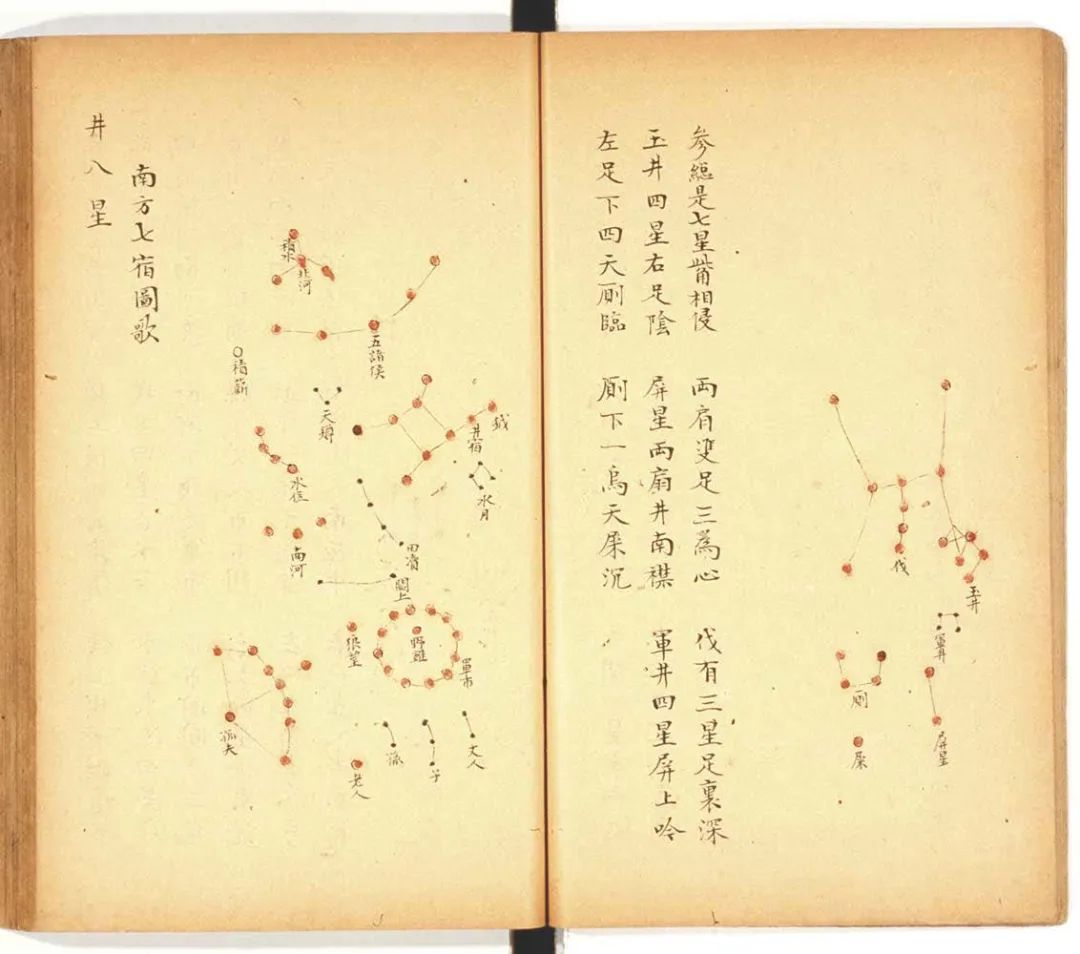 伐
玉井
軍井
厠
屏星
屎
参緫是七星觜相侵 両肩雙足三為心 伐有三星足裏深
玉井四星右足陰 屏星両扇井南襟 軍井四星屏上吟
左足下四天厠臨 厠下一烏天屎沉
井宿
水月
積水
北河
五諸侯
積薪
天罇
水位
南河
闕上
野雞
軍市
丈人
子
孫
老人
南方七宿圖歌
井八星